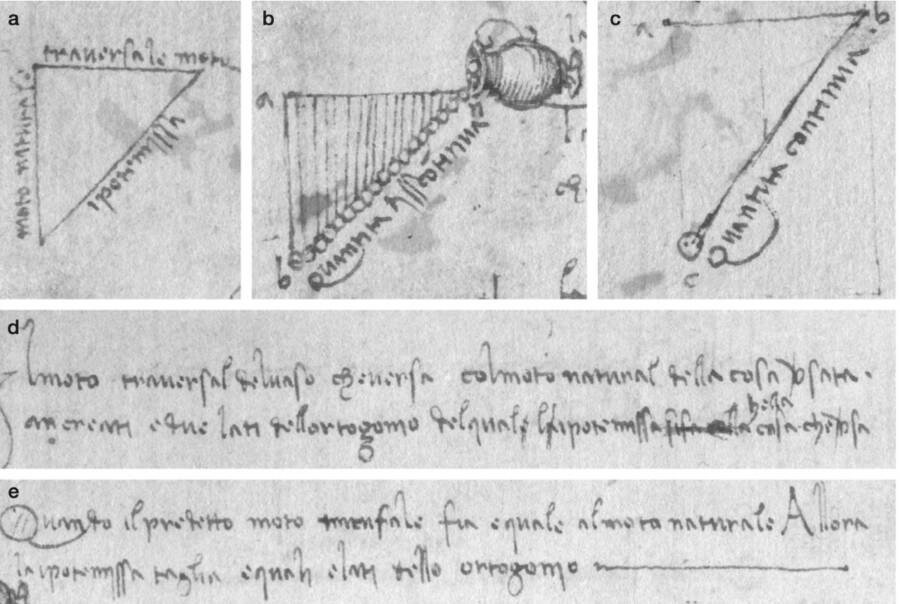 a
traversale moto
moto naturale
ipotenissa
b
a
b
Quantita disscontinua
c
a
b
Quantita continua
c
d
l moto traversal del vaso che versa col moto natural della cosa versata
an creati e due lati dell ortogonio del quale l ipotenissa
e la cosa che versa
e
Quando il predetto moto fia equale al moto naturale Allora
la ipotenissa taglia equali e lati dello ortogonio